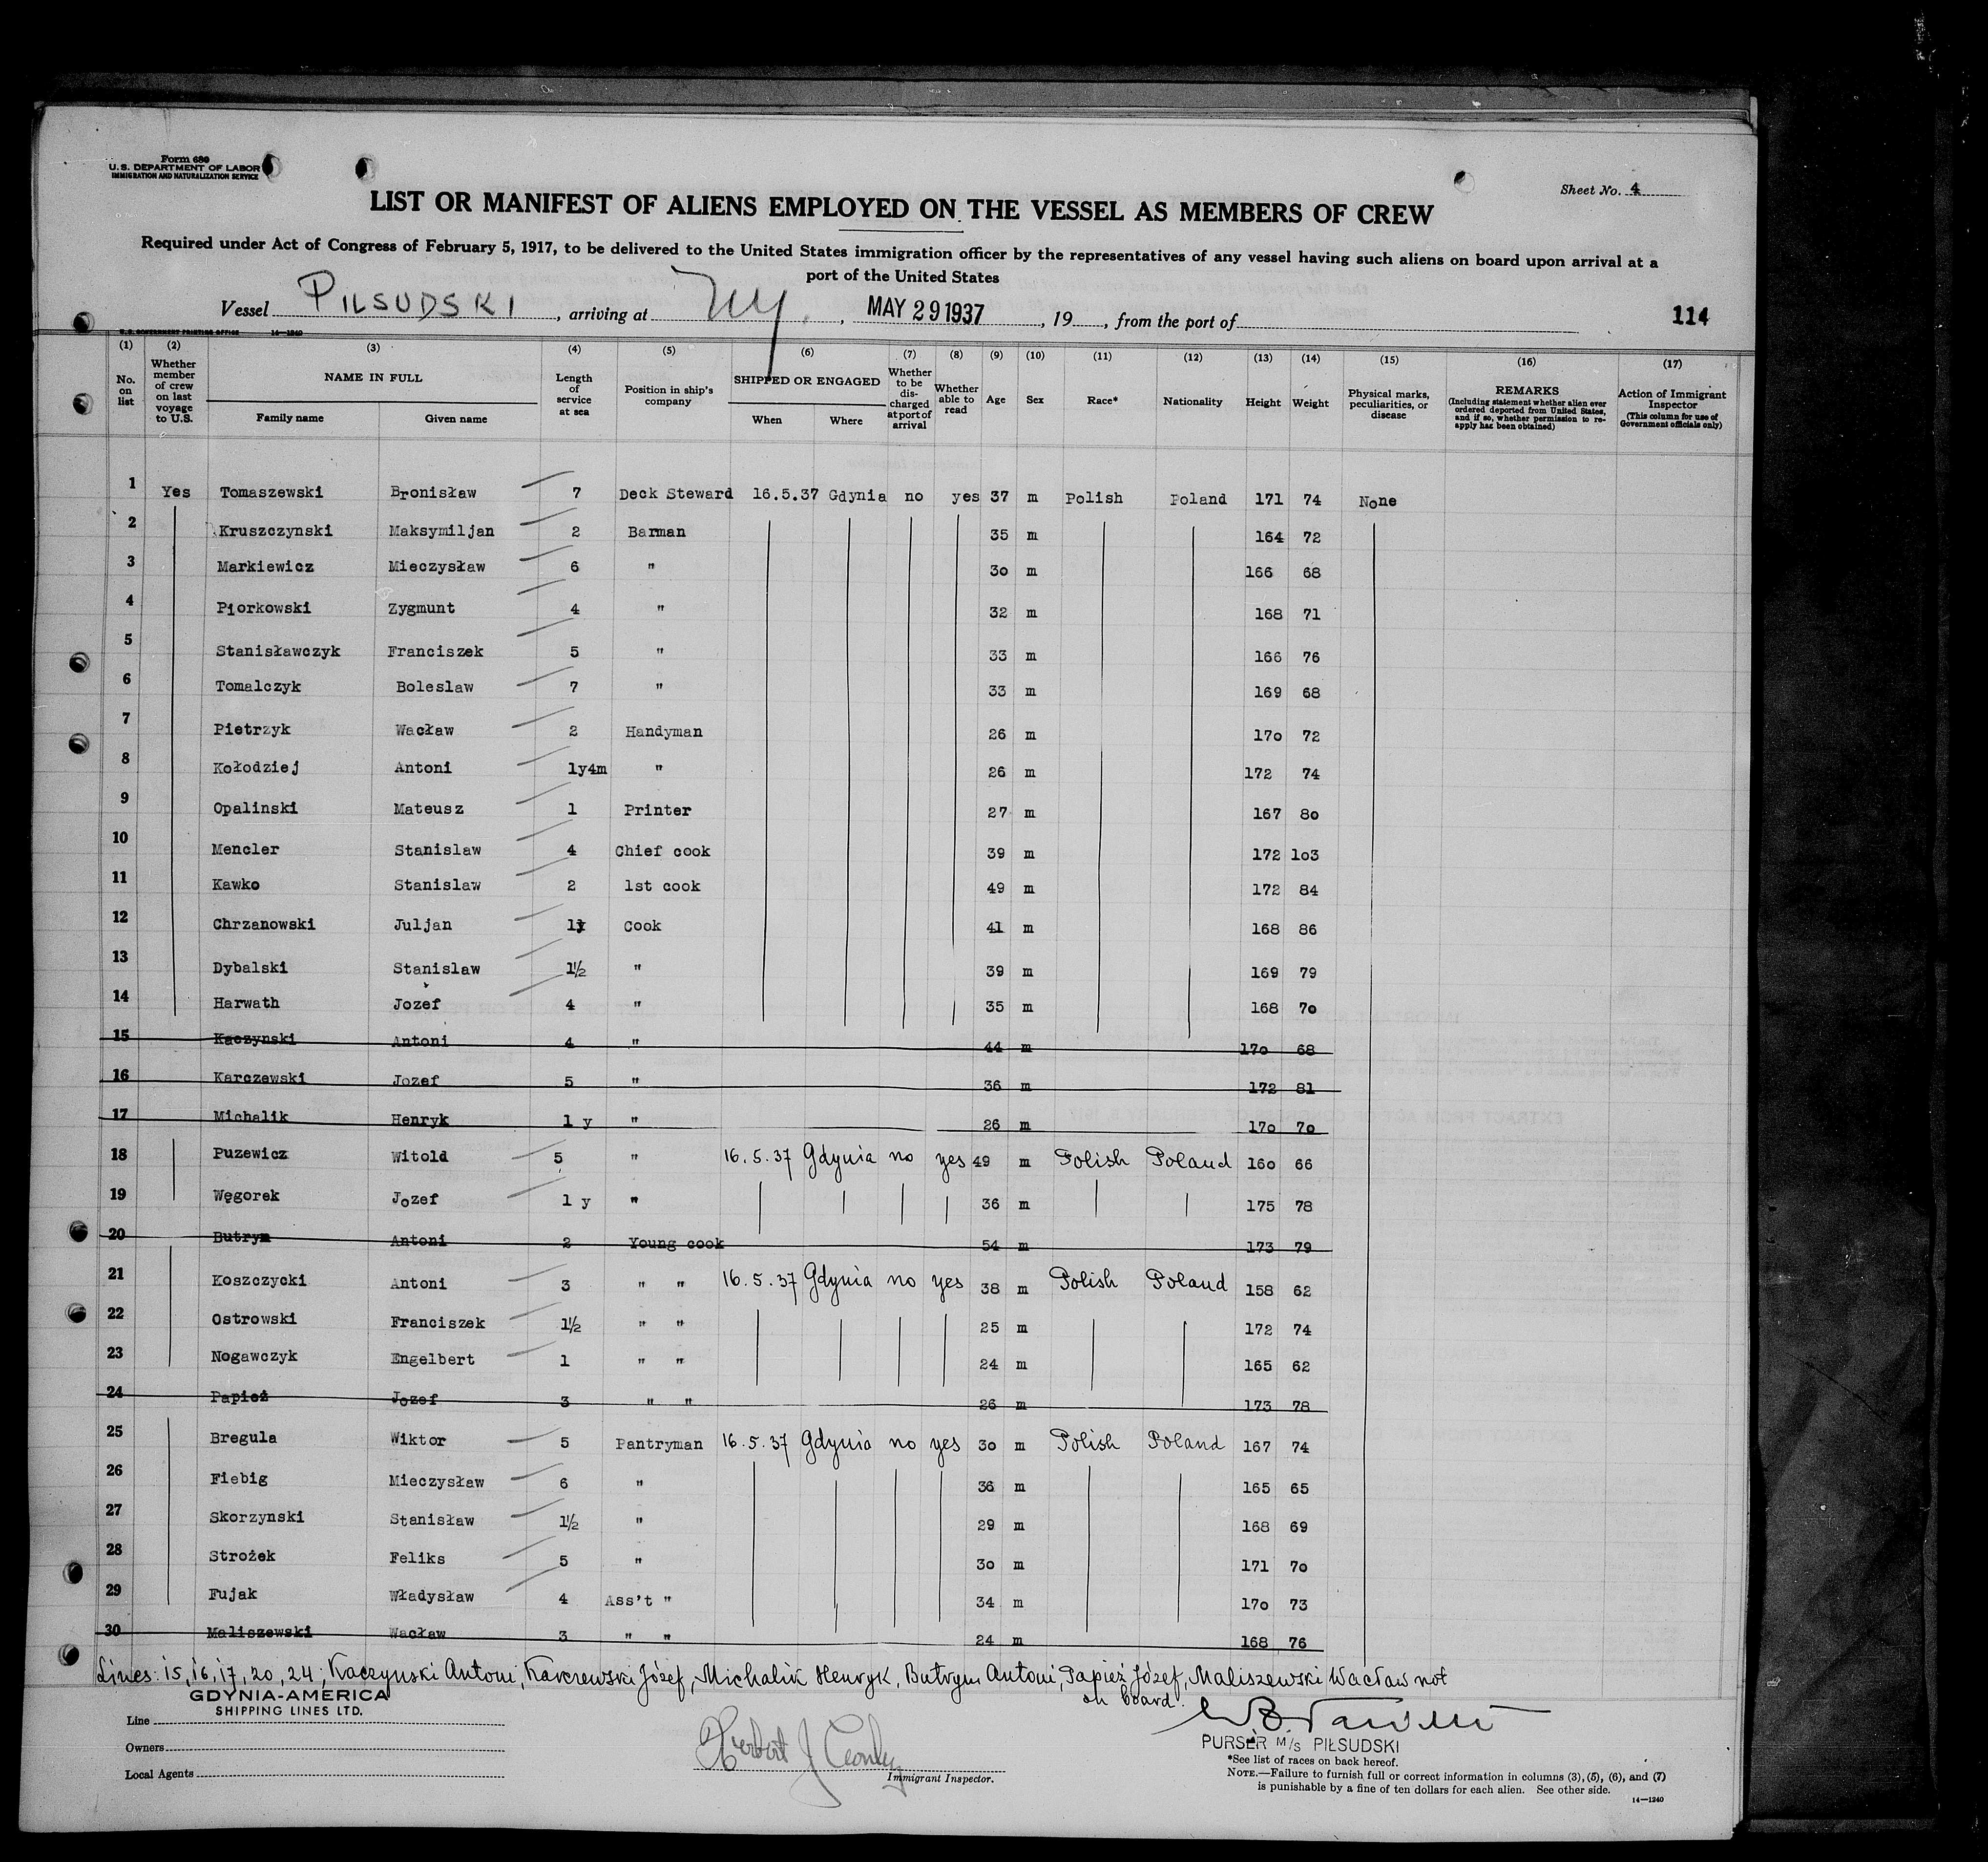 Form 680
U.S. DEPARTMENT OF LABOR
IMMIGRATION AND NATURALIZATION SERVICE
Sheet No. 4
LIST OR MANIFEST OF ALIENS EMPLOYED ON THE VESSEL AS MEMBERS OF CREW
Required under Act of Congress of February 5, 1917, to be delivered to the United States immigration officer by the representatives of any vessel having such aliens on board upon arrival at a
port of the United States
Vessel PILSUDSKI, arriving at NY., MAY 29 1937, 19, from the port of
114
U.S. GOVERNMENT PRINTING OFFICE 14—1240
(1) (2) (3) (4) (5) (6) (7) (8) (9) (10) (11) (12) (13) (14) (15) (16) (17)
No. on list
Whether member of crew on last voyage to U.S.
NAME IN FULL
Family name Given name
Length of service at sea
Position in ship's company
SHIPPED OR ENGAGED
When Where
Whether to be discharged at port of arrival
Whether able to read
Age Sex Race* Nationality Height Weight
Physical marks, peculiarities, or disease
REMARKS
(Including statement whether alien ever ordered deported from United States, and if so, whether permission to reapply has been obtained)
Action of Immigrant Inspector
(This column for use of Government officials only)
1 Yes Tomaszewski Bronisław 7 Deck Steward 16.5.37 Gdynia no yes 37 m Polish Poland 171 74 None
2 Kruszczynski Maksymiljan 2 Barman 35 m 164 72
3 Markiewicz Mieczysław 6 " 30 m 166 68
4 Piorkowski Zygmunt 4 " 32 m 168 71
5 Stanisławczyk Franciszek 5 " 33 m 166 76
6 Tomalczyk Boleslaw 7 " 33 m 169 68
7 Pietrzyk Wacław 2 Handyman 26 m 170 72
8 Kołodziej Antoni 1y4m " 26 m 172 74
9 Opalinski Mateusz 1 Printer 27 m 167 80
10 Mencler Stanislaw 4 Chief cook 39 m 172 103
11 Kawko Stanislaw 2 1st cook 49 m 172 84
12 Chrzanowski Juljan 1y Cook 41 m 168 86
13 Dybalski Stanislaw 1½ " 39 m 169 79
14 Harwath Jozef 4 " 35 m 168 70
15 Kaczynski Antoni 4 " 44 m 170 68
16 Karczewski Jozef 5 " 36 m 172 81
17 Michalik Henryk 1 y " 26 m 170 70
18 Puzewicz Witold 5 " 16.5.37 Gdynia no yes 49 m Polish Poland 160 66
19 Węgorek Jozef 1 y " 36 m 175 78
20 Butrym Antoni 2 Young cook 54 m 173 79
21 Koszczycki Antoni 3 " " 16.5.37 Gdynia no yes 38 m Polish Poland 158 62
22 Ostrowski Franciszek 1½ " " 25 m 172 74
23 Nogawczyk Engelbert 1 " " 24 m 165 62
24 Papież Jozef 3 " " 26 m 173 78
25 Bregula Wiktor 5 Pantryman 16.5.37 Gdynia no yes 30 m Polish Poland 167 74
26 Fiebig Mieczysław 6 " 36 m 165 65
27 Skorzynski Stanisław 1½ " 29 m 168 69
28 Strożek Feliks 5 " 30 m 171 70
29 Fujak Władysław 4 Ass't " 34 m 170 73
30 Maliszewski Wacław 3 " " 24 m 168 76
Lines: 15, 16, 17, 20, 24; Kaczynski Antoni, Karczewski Józef, Michalik Henryk, Butrym Antoni, Papież Józef, Maliszewski Wacław not
on board.
GDYNIA-AMERICA
SHIPPING LINES LTD.
Line
Owners
Local Agents
Herbert J
Immigrant Inspector.
PURSER M/S PIŁSUDSKI
*See list of races on back hereof.
NOTE.—Failure to furnish full or correct information in columns (3), (5), (6), and (7)
is punishable by a fine of ten dollars for each alien. See other side.
14—1240